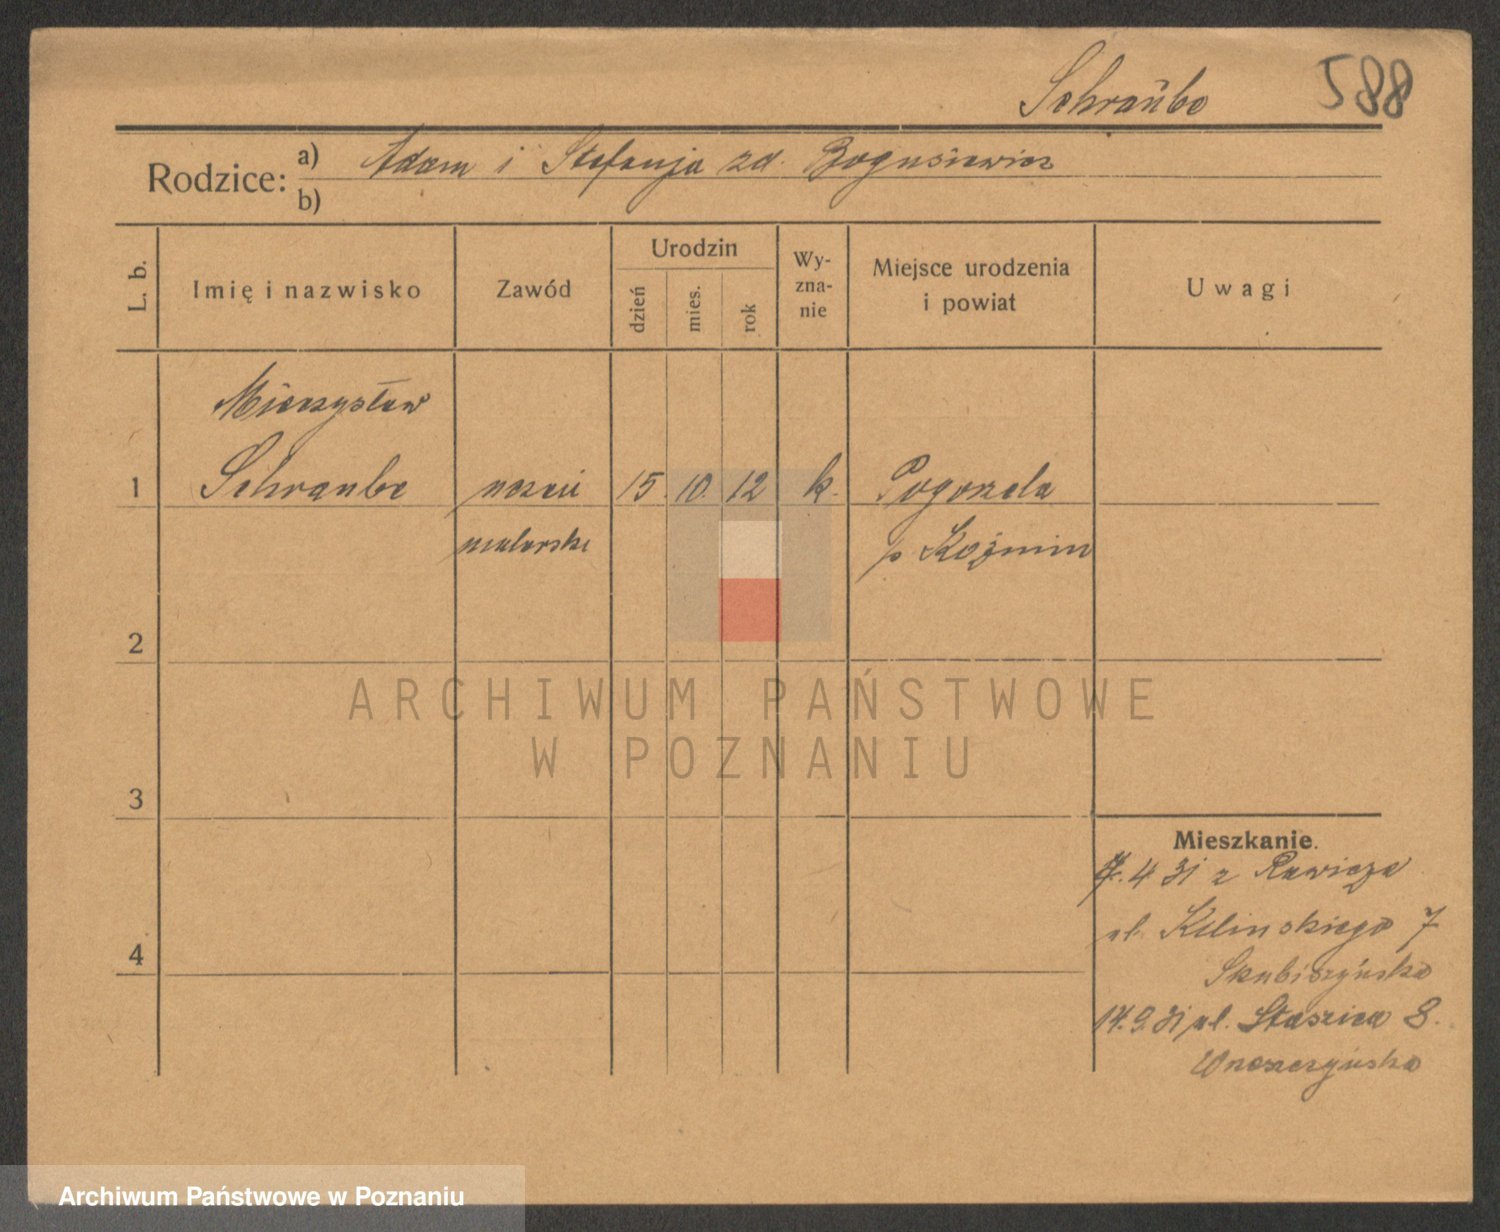 Schraübe 588
Rodzice: a) Adam i Stefanja zd. Bogusiewicz
b)
L. b.
Imię i nazwisko
Zawód
Urodzin
dzień
mies.
rok
Wy-
zna-
nie
Miejsce urodzenia
i powiat
Uwagi
Mieczysław
1 Schraube uczeń 15. 10. 12 k. Pogorzela
malarski p Koźmin
2
ARCHIWUM PAŃSTWOWE
W POZNANIU
3
Mieszkanie.
4 31 z Rawicza
ul. Kilinskiego 7
4 Skubiszyńska
14.9.31 ul. Staszica 8.
Archiwum Państwowe w Poznaniu